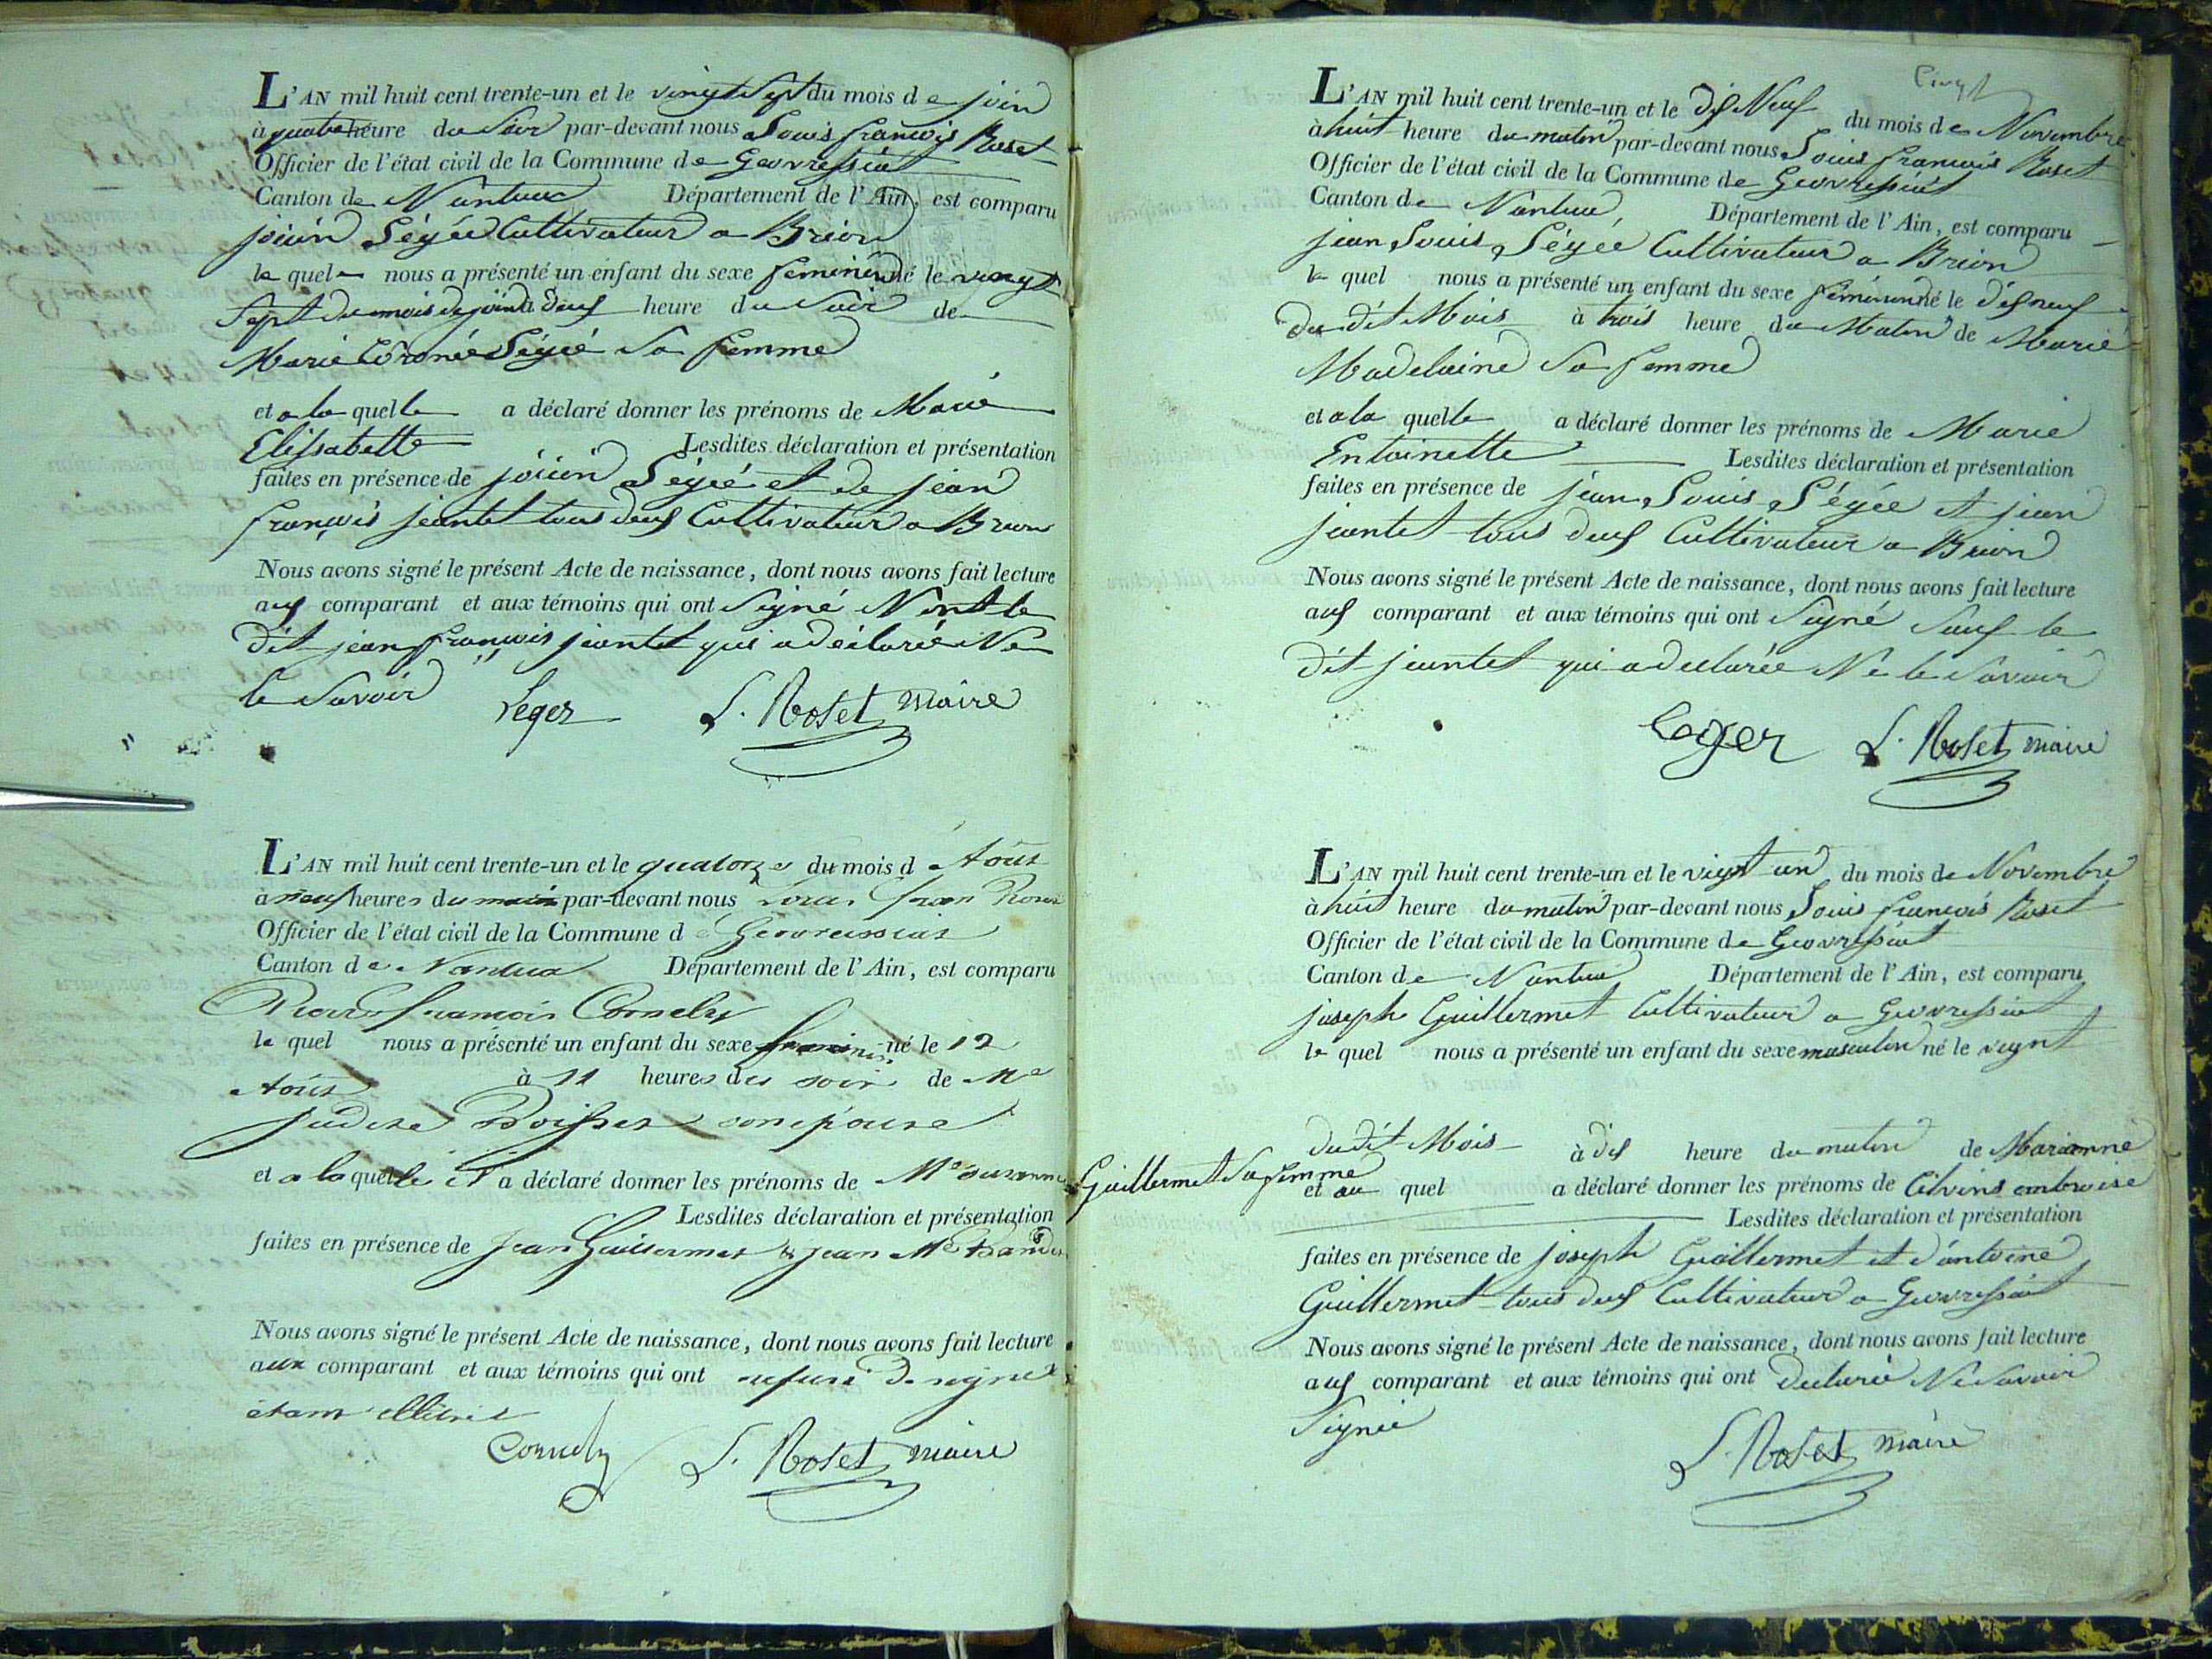 L'AN mil huit cent trente-un et le vingt Sept du mois de join
à quatre heure du Soir par-devant nous Louis françois Roset
Officier de l'état civil de la Commune de Geovressiat
Canton de Nantua Département de l'Ain, est comparu
joicin Légée Cultivateur a Brion
le quel nous a présenté un enfant du sexe feminin né le vingt
Sept du mois de join à deuf heure du Soir de
Marie Légié Sa femme
et a la quelle a déclaré donner les prénoms de Marie
Elissabette Lesdites déclaration et présentation
faites en présence de joicin Légié et de jean
françois jeantet tous deuf Cultivateur a Brion
Nous avons signé le présent Acte de naissance, dont nous avons fait lecture
auf comparant et aux témoins qui ont Signé Nont le
dit jean françois jeantet qui a déclarée Ne
le Savoir Leger L. Roset maire
L'AN mil huit cent trente-un et le quatorze du mois d'Août
à neuf heures du matin par-devant nous Louis fran Roset
Officier de l'état civil de la Commune dé Géovreissiat
Canton de Nantua Département de l'Ain, est comparu
Pierre françois Cornelly
le quel nous a présenté un enfant du sexe feminin né le 12
Août à 11 heures du soir de Me
Judite Boisser son épouse
et a laquelle il a déclaré donner les prénoms de Me Susanne
Lesdites déclaration et présentation
faites en présence de Jean Guillermet & jean Me
Nous avons signé le présent Acte de naissance, dont nous avons fait lecture
aux comparant et aux témoins qui ont refusé de signer
étant illitré
Cornely L. Roset maire
L'AN mil huit cent trente-un et le dif Neuf du mois de Novembre
à huit heure du matin par-devant nous Louis françois Roset
Officier de l'état civil de la Commune de Geovressiat
Canton de Nantua, Département de l'Ain, est comparu
jean Louis Légée Cultivateur a Brion
le quel nous a présenté un enfant du sexe féminin né le dif neuf
du dit Mois à trois heure du Matin de Marie
Madelaine Sa femme
et a la quelle a déclaré donner les prénoms de Marie
Entoinette Lesdites déclaration et présentation
faites en présence de jean Louis Légée et jean
jeantet tous deuf Cultivateur a Brion
Nous avons signé le présent Acte de naissance, dont nous avons fait lecture
auf comparant et aux témoins qui ont Signé Sauf le
dit jeantet qui a declarée Ne le Savoir
Leger L. Roset maire
L'AN mil huit cent trente-un et le vignt un du mois de Novembre
à huit heure du matin par-devant nous Louis françois Roset
Officier de l'état civil de la Commune de Geovressiat
Canton de Nantua Département de l'Ain, est comparu
joseph Guillermet Cultivateur a Geovressiat
le quel nous a présenté un enfant du sexe masculin né le vignt
dudit Mois à dif heure du matin de Marianne
Guillermet Sa femme
et au quel a déclaré donner les prénoms de Cilvins embroise
Lesdites déclaration et présentation
faites en présence de joseph Guillermet et d'antoine
Guillermet tous deuf Cultivateur a Geovressiat
Nous avons signé le présent Acte de naissance, dont nous avons fait lecture
auf comparant et aux témoins qui ont declarée Ne Savoir
Signée
L. Roset maire